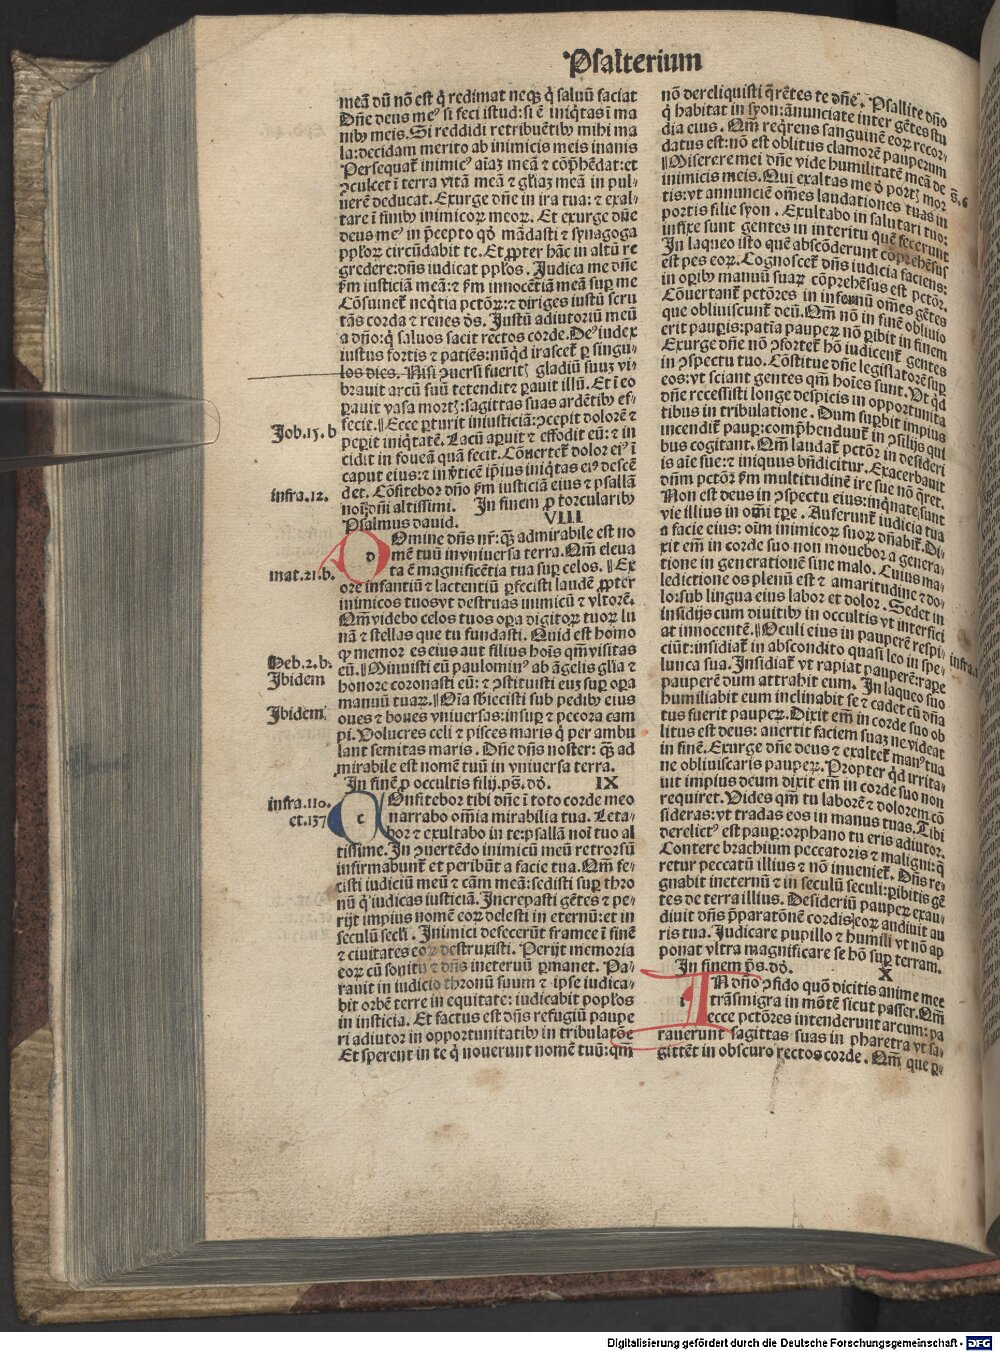 Psalterium
meā dū nō est q̄ redimat neqꝫ q̄ saluū faciat
Dn̄e deus meꝰ si feci istud: si ē iniq̄tas ī ma
nibꝰ meis. Si reddidi retribuētibꝰ mihi ma
la: decidam merito ab inimicis meis inanis
Persequat̄ inimicꝰ aīaꝫ meā ⁊ cōp̄hēdat: et
ꝯculcet ī terra vitā meā ⁊ gl̄iaꝫ meā in pul⸗
uerē deducat. Exurge dn̄e in ira tua: ⁊ exal⸗
tare ī finibꝰ inimicoꝝ meoꝝ. Et exurge dn̄e
deus meꝰ in p̄cepto qd̄ mādasti ⁊ synagoga
ppl̄oꝝ circūdabit te. Et ꝓpter hāc in altū re
gredere: dn̄s iudicat ppl̄os. Judica me dn̄e
ẜm iusticiā meā: ⁊ ẜm innocētiā meā suꝑ me
Cōsumet̄ neq̄tia pctōꝝ: ⁊ diriges iustū scru
tās corda ⁊ renes dꝰs. Justū adiutoriū meū
a dn̄o: q̄ saluos facit rectos corde. Deꝰ iudex
iustus fortis ⁊ patiēs: nūqd̄ irascet̄ ꝑ singu⸗
los dies. Nisi ꝯuersi fueritꝭ gladiū suuꝫ vi⸗
brauit arcū suū tetendit ⁊ ꝑauit illū. Et ī eo
ꝑauit vasa mortꝭ: sagittas suas ardētibꝰ ef⸗
fecit. Ecce ꝑturit iniusticiā: ꝯcepit dolorē ⁊
Job.15.b
peperit iniq̄tatē. Lacū aꝑuit ⁊ effodit eū: ⁊ in
cidit in foueā quā fecit. Cōuertet̄ dolor eiꝰ ī
caput eius: ⁊ in v̄ticē ip̄ius iniq̄tas eiꝰ descē
infra.12.
det. Cōfitebor dn̄o ẜm iusticiā eius ⁊ psallā
noī dn̄i altissimi. In finem ꝓ torcularibꝰ
Psalmus dauid. VIII
Domine dn̄s nr̄: qꝫ admirabile est no
mē tuū in vniuersa terra. Qm̄ eleua
mat.21.b.
ta ē magnificētia tua suꝑ celos. Ex
ore infantiū ⁊ lactentiū ꝑfecisti laudē ꝓpter
inimicos tuos vt destruas inimicū ⁊ vltorē.
Qm̄ videbo celos tuos oꝑa digitoꝝ tuoꝝ lu
nā ⁊ stellas que tu fundasti. Quid est homo
ꝙ memor es eius aut filius hoīs qm̄ visitas
Heb.2.b.
eū. Minuisti eū paulominꝰ ab āgelis gl̄ia ⁊
Ibidem
honore coronasti eū: ⁊ ꝯstituisti euꝫ suꝑ oꝑa
manuū tuaꝝ. Oīa sbiecisti sub pedibꝰ eius
Ibidem
oues ⁊ boues vniuersas: insuꝑ ⁊ pecora cam
pi. Volucres celi ⁊ pisces maris q̄ per ambu
lant semitas maris. Dn̄e dn̄s noster: qꝫ ad
mirabile est nomē tuū in vniuersa terra.
In finē ꝓ occultis filij. ps̄. dd̄. IX
infra.110.
Confitebor tibi dn̄e ī toto corde meo
et.137
narrabo om̄ia mirabilia tua. Leta⸗
bor ⁊ exultabo in te: psallā noī tuo al
tissime. In ꝯuertēdo inimicū meū retrorsū
infirmabunt̄ et peribūt a facie tua. Qm̄ fe⸗
cisti iudiciū meū ⁊ cām meā: sedisti suꝑ thro
nū q̄ iudicas iusticiā. Increpasti gētes ⁊ pe⸗
rijt impius nomē eoꝝ delesti in eternū: et in
seculū secl̄i. Inimici defecerūt framee ī finē
⁊ ciuitates eoꝝ destruxisti. Perijt memoria
eoꝝ cū sonitu ⁊ dn̄s ineternū ꝑmanet. Pa⸗
rauit in iudicio thronū suum ⁊ ipse iudica⸗
bit orbē terre in equitate: iudicabit popl̄os
in iusticia. Et factus est dn̄s refugiū paupe
ri adiutor in opportunitatibꝰ in tribulatōe
Et sperent in te q̄ nouerunt nomē tuū: qm̄
nō dereliquisti q̄rētes te dn̄e. Psallite dn̄o
q̄ habitat in syon: ānunciate inter gētes stu
dia eius. Qm̄ req̄rens sanguinē eoꝝ recor⸗
datus est: nō est oblitus clamorē pauperum
Miserere mei dn̄e vide humilitatē meā de
s̄.6
inimicis meis. Qui exaltas me d̄ portꝭ mor
tis: vt annunciē om̄es laudationes tuas in
portis filie syon. Exultabo in salutari tuo:
infixe sunt gentes in interitu quē fecerunt
In laqueo isto quē abscōderunt cōprehēsus
est pes eoꝝ. Cognoscet̄ dn̄s iudicia faciens:
in oꝑibꝰ manuū suaꝝ cōprehēsus est pctōr.
Cōuertant̄ pctōres in infernū om̄es gētes
que obliuiscunt̄ deū. Qm̄ nō in finē obliuio
erit pauꝑis: patīa pauperꝝ nō ꝑibit in finem
Exurge dn̄e nō ꝯfortet̄ hō iudicent̄ gentes
in ꝯspectu tuo. Cōstitue dn̄e legislatorē suꝑ
eos: vt sciant gentes qm̄ hoīes sunt. Vt qd̄
dn̄e recessisti longe despicis in opportunita
tibus in tribulatione. Dum suꝑbit impius
incendit̄ pauꝑ: comp̄hendunt̄ in ꝯsilijs qui
bus cogitant. Qm̄ laudat̄ pctōr in desideri
is aīe sue: ⁊ iniquus bn̄dicitur. Exacerbauit
dn̄m pctōr ẜm multitudinē ire sue nō q̄ret.
Non est deus in ꝯspectu eius: inq̄nate sunt
vie illius in omī tp̄e. Auferunt̄ iudicia tua
a facie eius: oīm inimicoꝝ suoꝝ dn̄abit̄. Di⸗
xit em̄ in corde suo non mouebor a genera⸗
tione in generationē sine malo. Cuius ma⸗
ledictione os plenū est ⁊ amaritudine ⁊ do⸗
lo: sub lingua eius labor et dolor. Sedet in
insidijs cum diuitibꝰ in occultis vt interfici
at innocentē. Oculi eius in pauperē respi⸗
ciūt: insidiat̄ in abscondito quasi leo in spe⸗
infra.
lunca sua. Insidiat̄ vt rapiat pauperē: rape
pauperē dum attrahit eum. In laqueo suo
humiliabit eum inclinabit se ⁊ cadet cū dn̄a
tus fuerit pauperꝝ. Dixit em̄ in corde suo ob
litus est deus: auertit faciem suaꝫ ne videat
in finē. Exurge dn̄e deus ⁊ exaltet̄ manꝰ tua
ne obliuiscaris pauperꝝ. Propter qd̄ irrita⸗
uit impius deum dixit em̄ in corde suo non
requiret. Vides qm̄ tu laborē ⁊ dolorem cō
sideras: vt tradas eos in manus tuas. Tibi
derelictꝰ est pauꝑ: orphano tu eris adiutor.
Contere brachium peccatoris ⁊ maligni: q̄
retur peccatū illius ⁊ nō inueniet̄. Dn̄s re⸗
gnabit ineternū ⁊ in seculū seculi: ꝑibitis gē
tes de terra illius. Desideriū pauperꝝ exau⸗
diuit dn̄s p̄paratōnē cordis eoꝝ audiuit au
ris tua. Iudicare pupillo ⁊ humili vt nō ap
ponat vltra magnificare se hō suꝑ terram.
In finem p̄s. dd̄. X
In dn̄o ꝯfido quō dicitis anime mee
trāsmigra in mōtē sicut passer. Qm̄
ecce pctōres intenderunt arcum: pa
rauerunt sagittas suas in pharetra vt sa⸗
gittēt in obscuro rectos corde. Qm̄ que ꝑ⸗
Digitalisierung gefördert durch die Deutsche Forschungsgemeinschaft - DFG